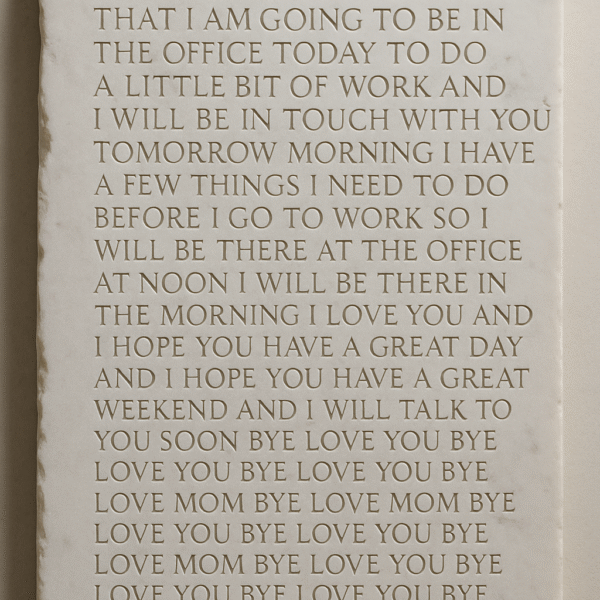 THAT I AM GOING TO BE IN
THE OFFICE TODAY TO DO
A LITTLE BIT OF WORK AND
I WILL BE IN TOUCH WITH YOU
TOMORROW MORNING I HAVE
A FEW THINGS I NEED TO DO
BEFORE I GO TO WORK SO I
WILL BE THERE AT THE OFFICE
AT NOON I WILL BE THERE IN
THE MORNING I LOVE YOU AND
I HOPE YOU HAVE A GREAT DAY
AND I HOPE YOU HAVE A GREAT
WEEKEND AND I WILL TALK TO
YOU SOON BYE LOVE YOU BYE
LOVE YOU BYE LOVE YOU BYE
LOVE MOM BYE LOVE MOM BYE
LOVE YOU BYE LOVE YOU BYE
LOVE MOM BYE LOVE YOU BYE
LOVE YOU BYE LOVE YOU BYE